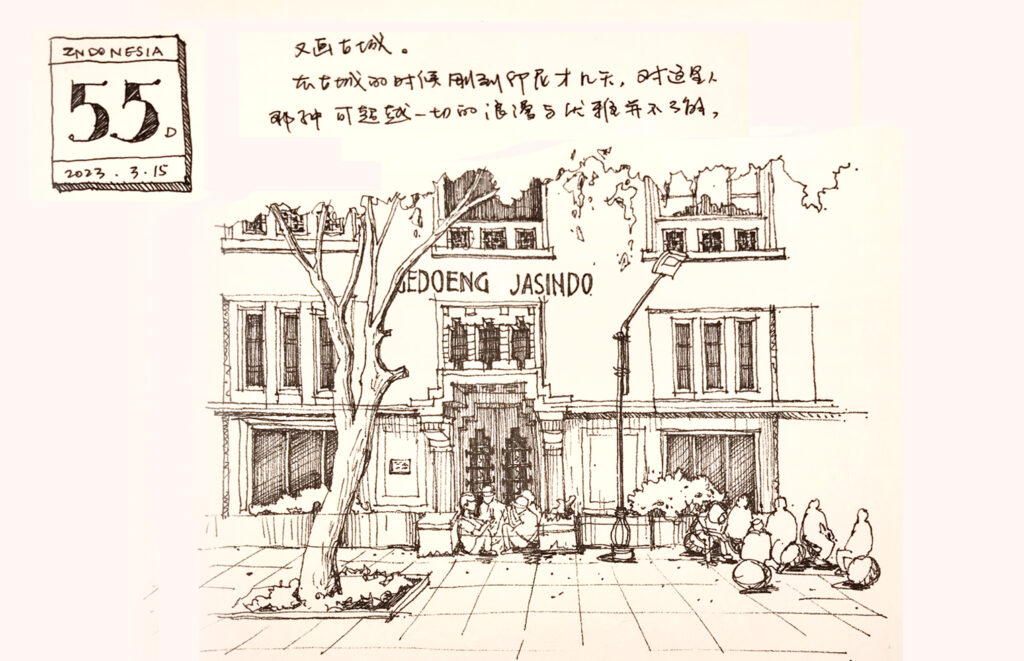 INDONESIA
55 D
2023.3.15
又画古城。
在古城的时候刚到印尼才几天,对这里人
那种可超越一切的浪漫与优雅并不了解,
GEDOENG JASINDO